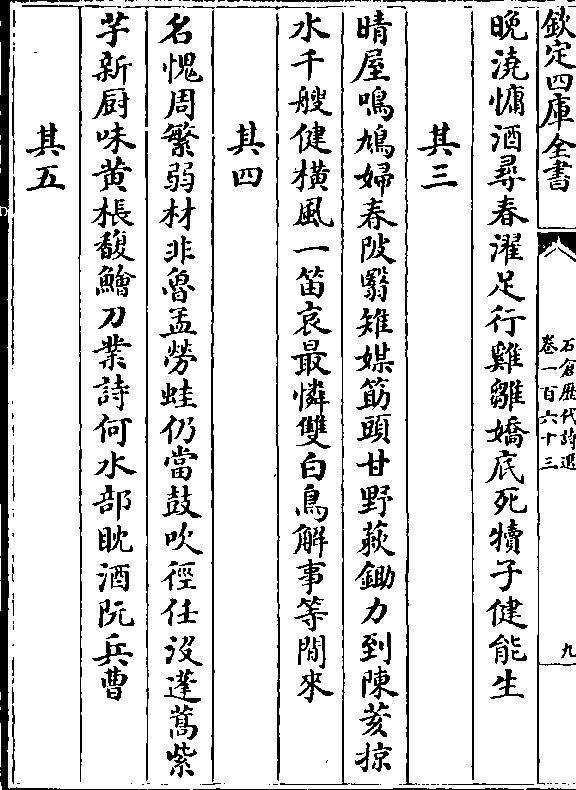 欽定四庫全書
石倉歷代詩選
卷一百六十三
九
晚澆慵酒尋春濯足行雞雛嬌底死犢子健能生
其三
晴屋鳴鳩婦春陂翳雉媒筯頭甘野蔌鋤力到陳荄掠
水千艘健横風一笛哀最憐雙白鳥解事等閒來
其四
名愧周繁弱材非魯孟勞蛙仍當鼓吹徑任沒蓬蒿紫
芋新厨味黄棖馥鱠刀業詩何水部眈酒阮兵曹
其五